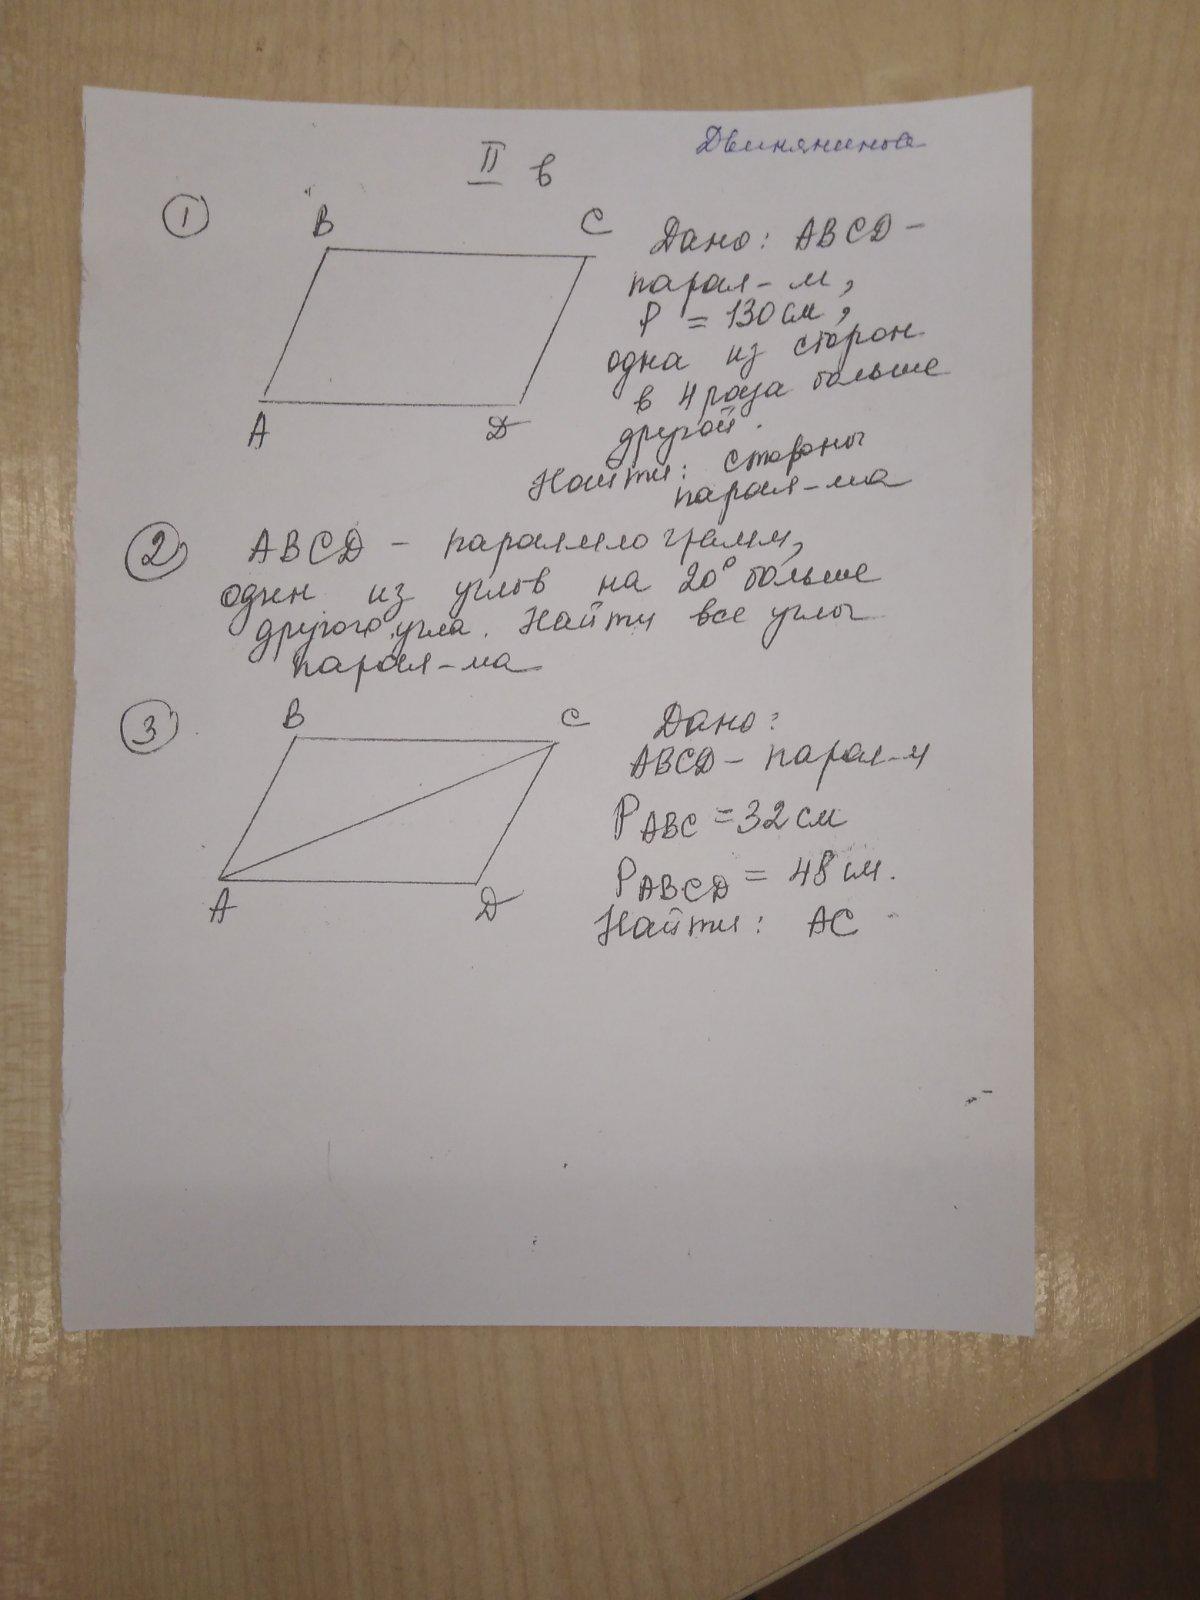 Двинянинова
II в
1
B
C
A
D
Дано: ABCD –
парал-м,
P = 130 см,
одна из сторон
в 4 раза больше
другой.
Найти: стороны
парал-ма
2 ABCD – параллелограмм,
один из углов на 20° больше
другого угла. Найти все углы
парал-ма
3
B
C
A
D
Дано:
ABCD – парал-м
P ABC = 32 см
P ABCD = 48 см.
Найти: AC